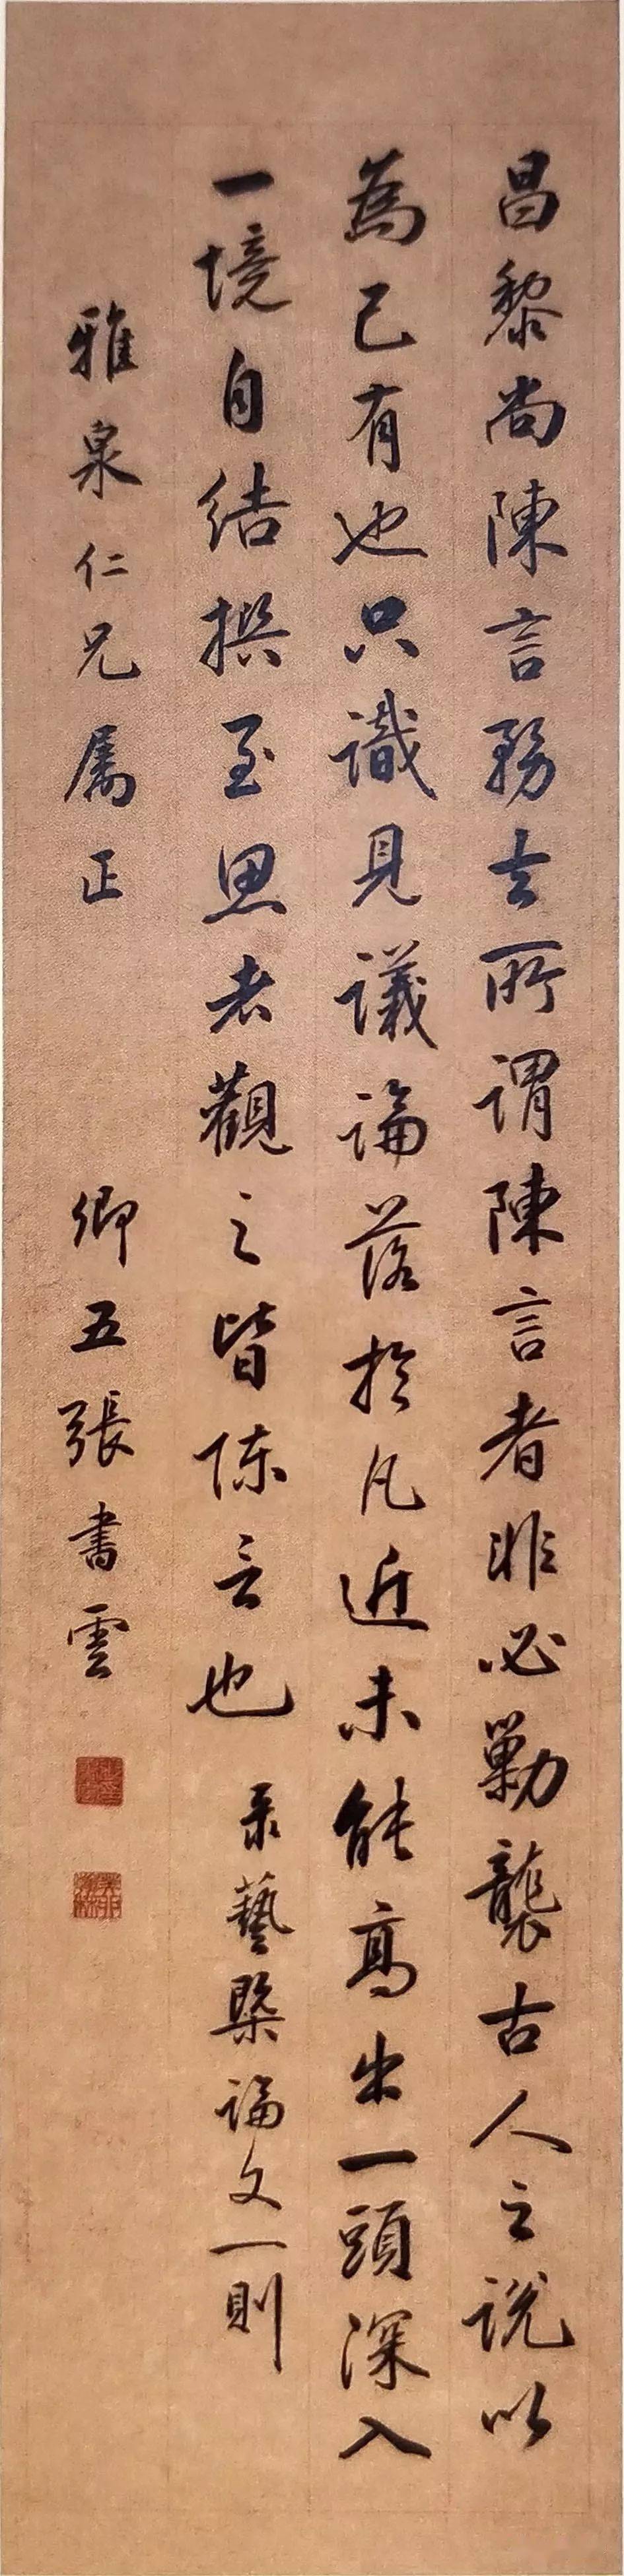 昌黎尚陳言務去所謂陳言者非必勦襲古人之說以
為己有也只識見議論落於凡近未能高出一頭深入
一境自結撰至思者觀之皆陳言也 录藝槩論文一則
雅泉仁兄属正 卿五張書雲